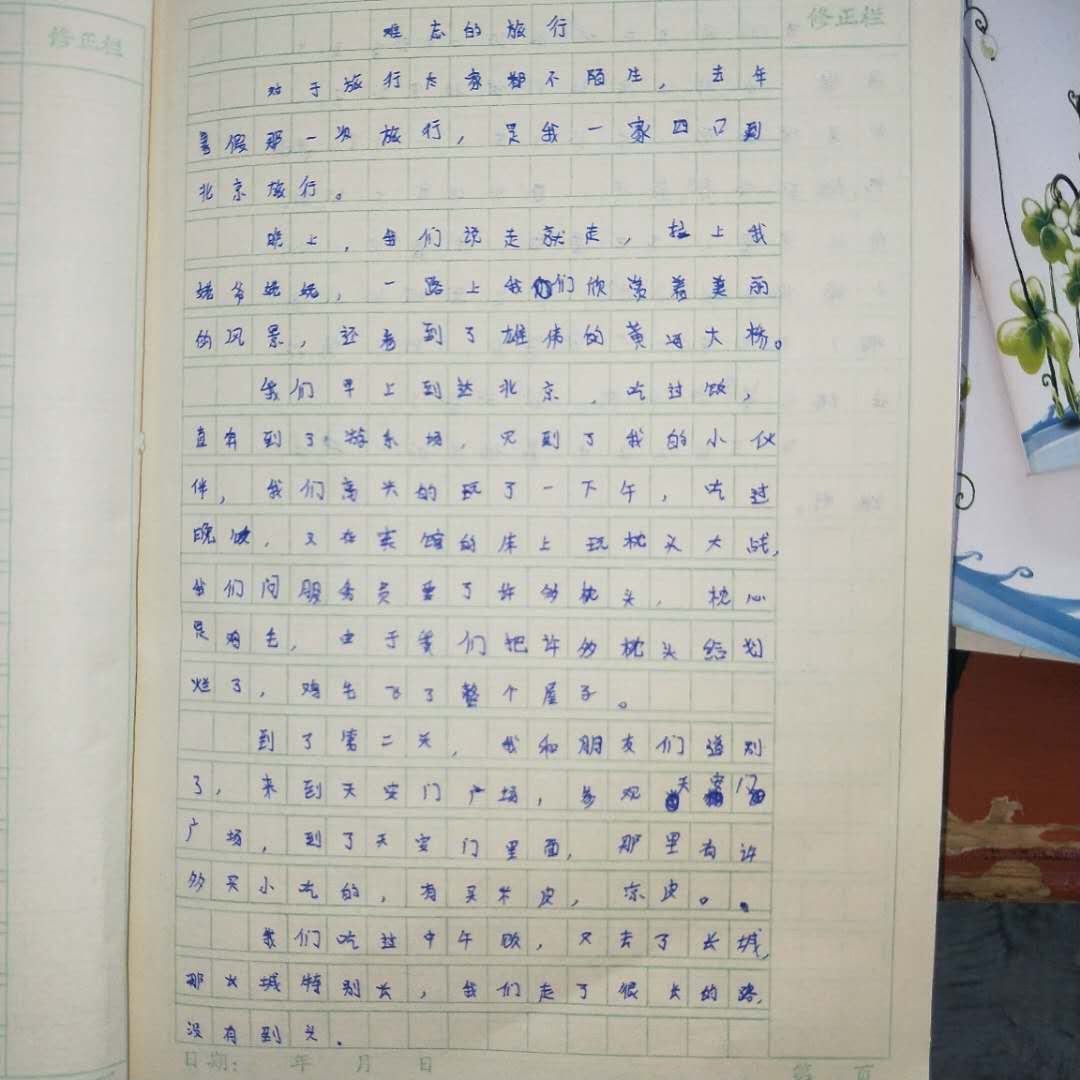 修正栏
修正栏
难忘的旅行
对于旅行大家都不陌生，去年
暑假那一次旅行，是我一家四口到
北京旅行。
晚上，我们说走就走，拉上我
姥爷姥姥，一路上我们欣赏着美丽
的风景，还看到了雄伟的黄河大桥。
我们早上到达北京，吃过饭，
直奔到了游乐场，见到了我的小伙
伴，我们高兴的玩了一下午，吃过
晚饭，又在宾馆的床上玩枕头大战，
我们问服务员要了许多枕头，枕心
是鸡毛，由于我们把许多枕头给划
烂了，鸡毛飞了整个屋子。
到了第二天，我和朋友们道别
了，来到天安门广场，参观天安门
广场，到了天安门里面，那里有许
多买小吃的，有买米皮，凉皮。
我们吃过中午饭，又去了长城，
那长城特别长，我们走了很长的路，
没有到头．
日期： 年 月 日
第 页